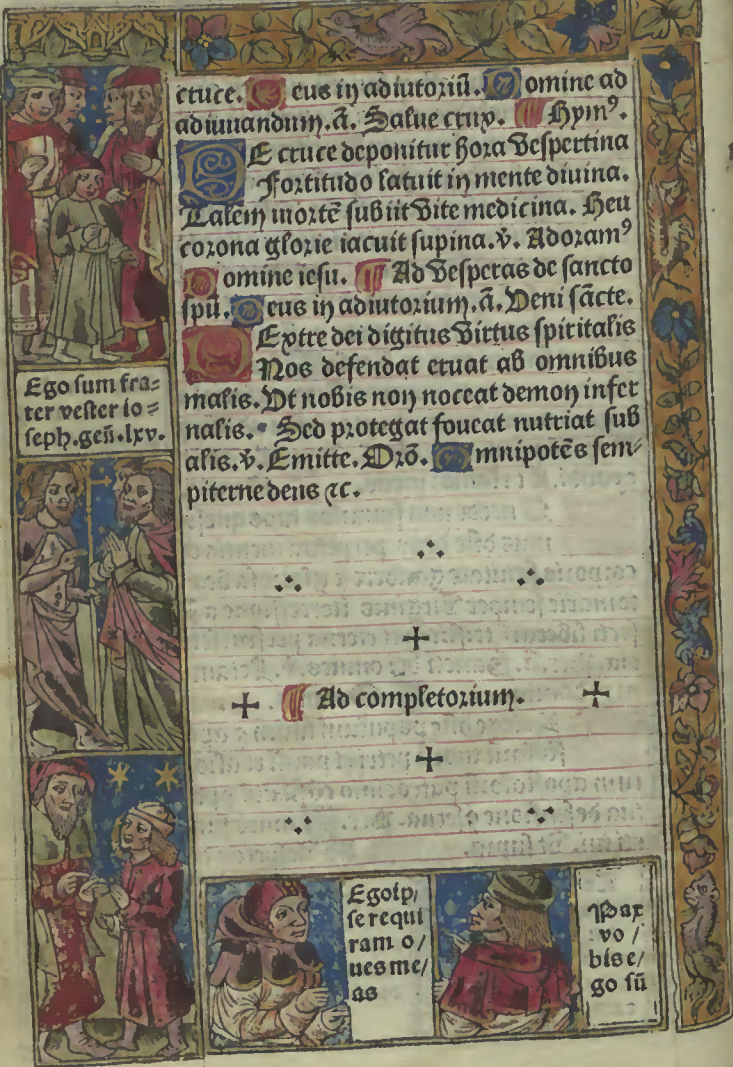 cruce. Deus in adiutoriū. Domine ad
adiuuandum. ā. Salue crux. Hymꝰ.
DE cruce deponitur hora vespertina
Fortitudo latuit in mente diuina.
Talem mortē subiit vite medicina. Heu
corona glorie iacuit supina. v̄. Adoramꝰ
Domine iesu. Ad vesperas de sancto
spū. Deus in adiutorium. ā. Veni sācte.
DExtre dei digitus virtus spiritalis
Nos defendat eruat ab omnibus
malis. Vt nobis non noceat demon infer
nalis. Sed protegat foueat nutriat sub
alis. v̄. Emitte. Orō. Omnipotēs sem-
piterne deus ⁊c.
Ad completorium.
Ego sum fra=
ter vester io=
seph. geñ. lxv.
Ego ip/
se requi
ram o/
ues me/
as
Pax
vo /
bis e/
go sū